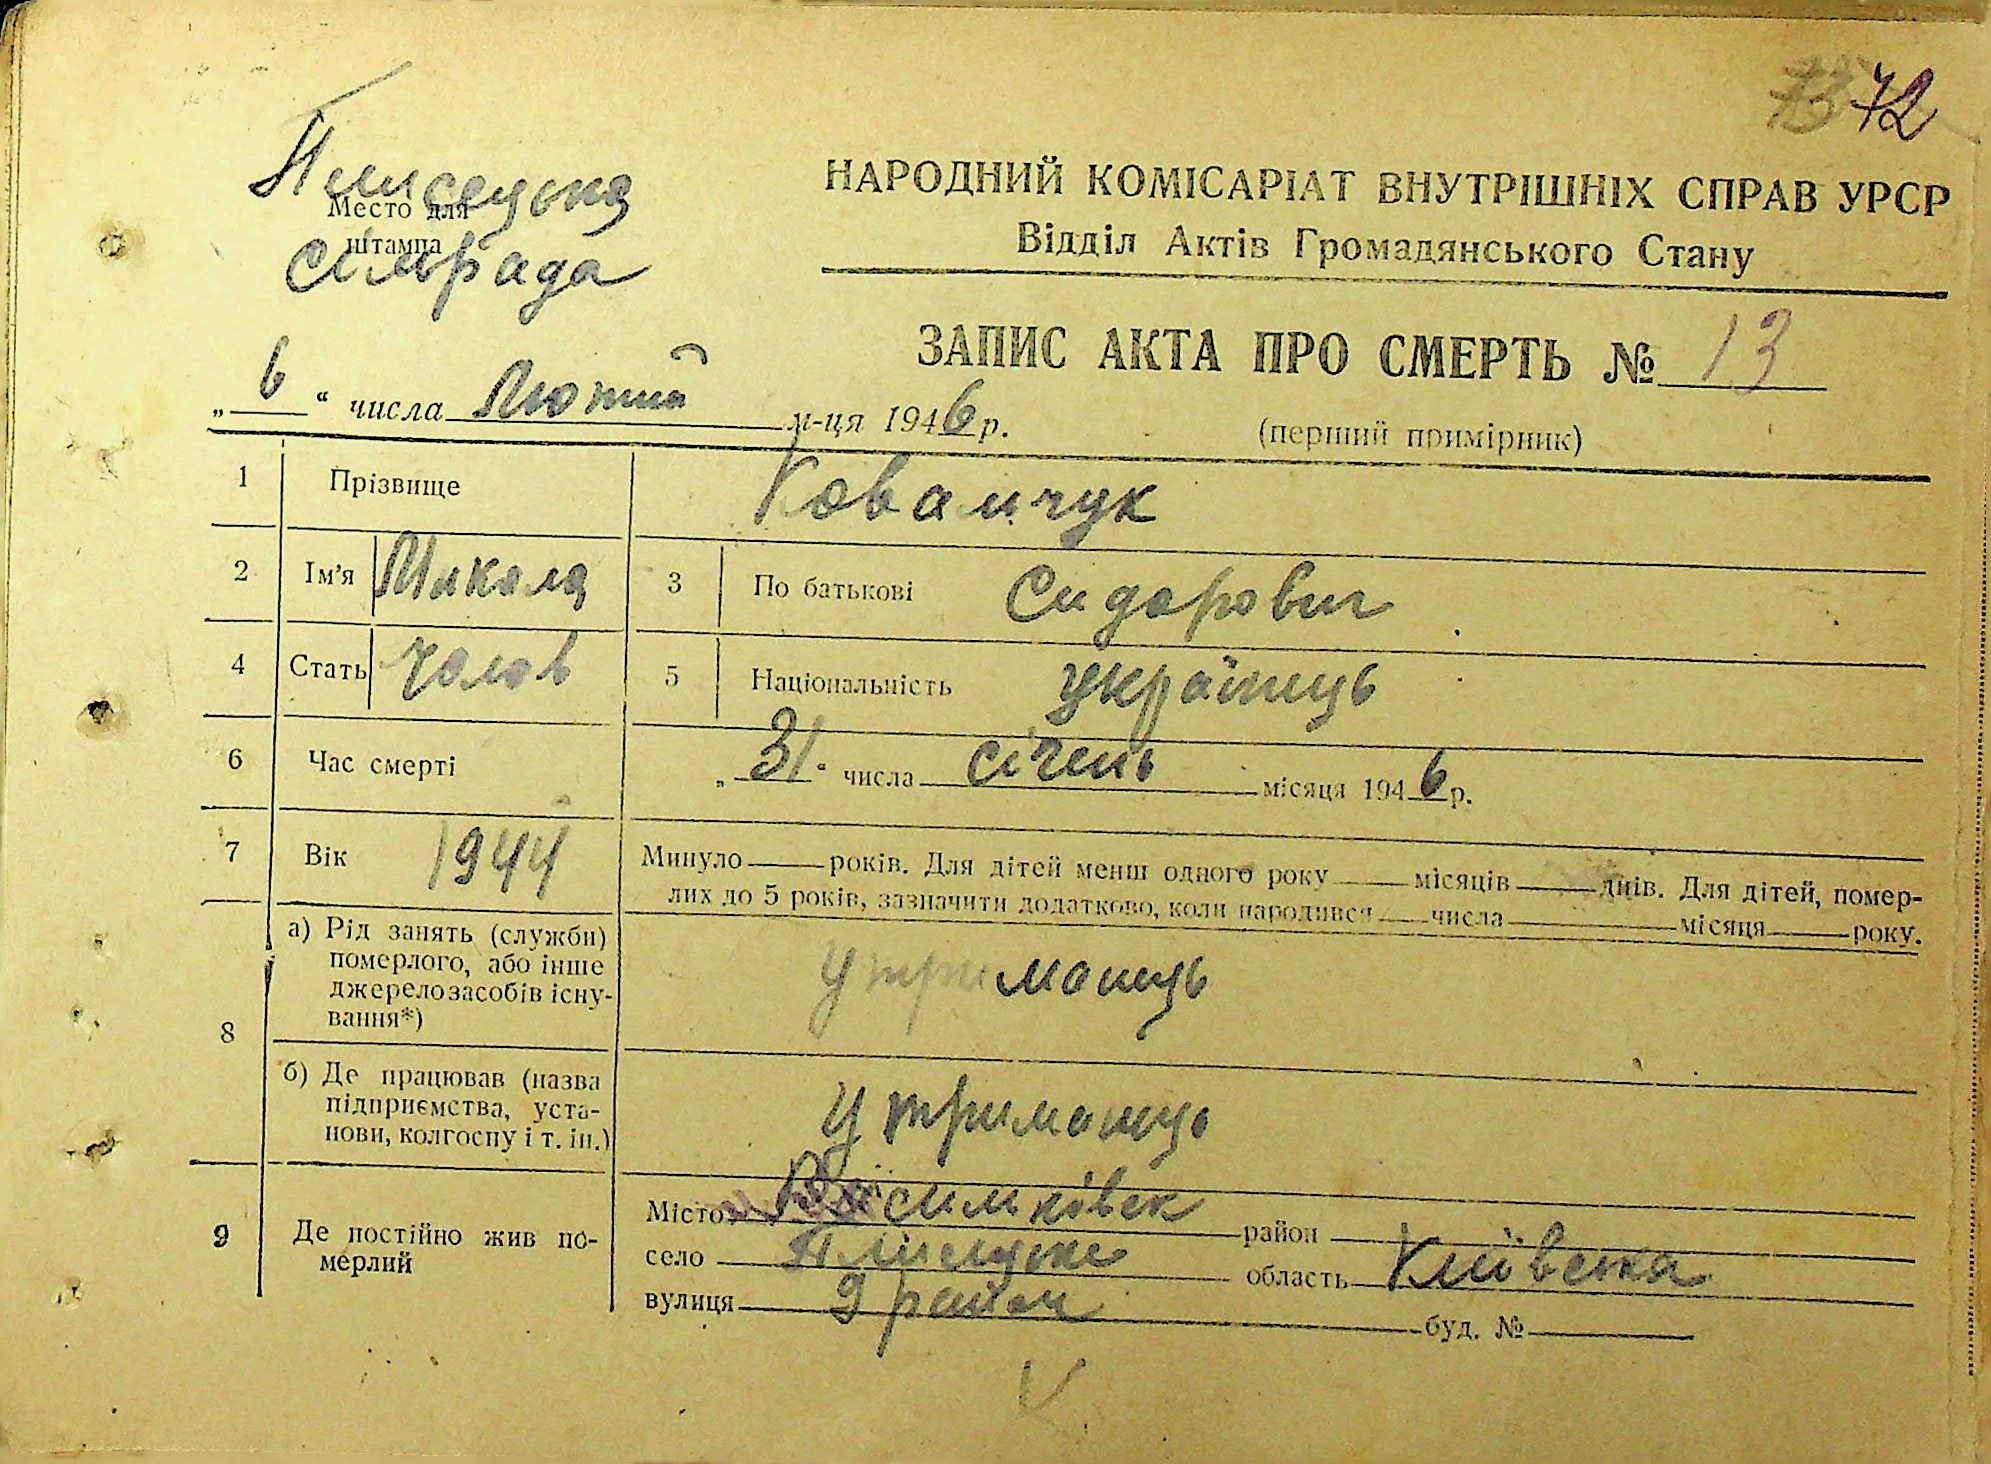 73 72
Плисецька
Место для
штампа
сільрада
НАРОДНИЙ КОМІСАРІАТ ВНУТРІШНІХ СПРАВ УРСР
Відділ Актів Громадянського Стану
ЗАПИС АКТА ПРО СМЕРТЬ № 13
„ 6 “ числа Лютий м-ця 1946 р.
(перший примірник)
1 Прізвище Ковальчук
2 Ім’я Микола 3 По батькові Сидорович
4 Стать Чолов 5 Національність українець
6 Час смерті „ 31 “ числа січень місяця 1946 р.
7 Вік 1944 Минуло років. Для дітей менш одного року місяців днів. Для дітей, помер-
лих до 5 років, зазначити додатково, коли народився числа місяця року.
8 а) Рід занять (служби)
померлого, або інше
джерело засобів існу-
вання*)
утриманець
б) Де працював (назва
підприємства, уста-
нови, колгоспу і т. ін.)
утриманець
9 Де постійно жив по-
мерлий
Місто район
село Плисецьке область Київська
вулиця буд. №